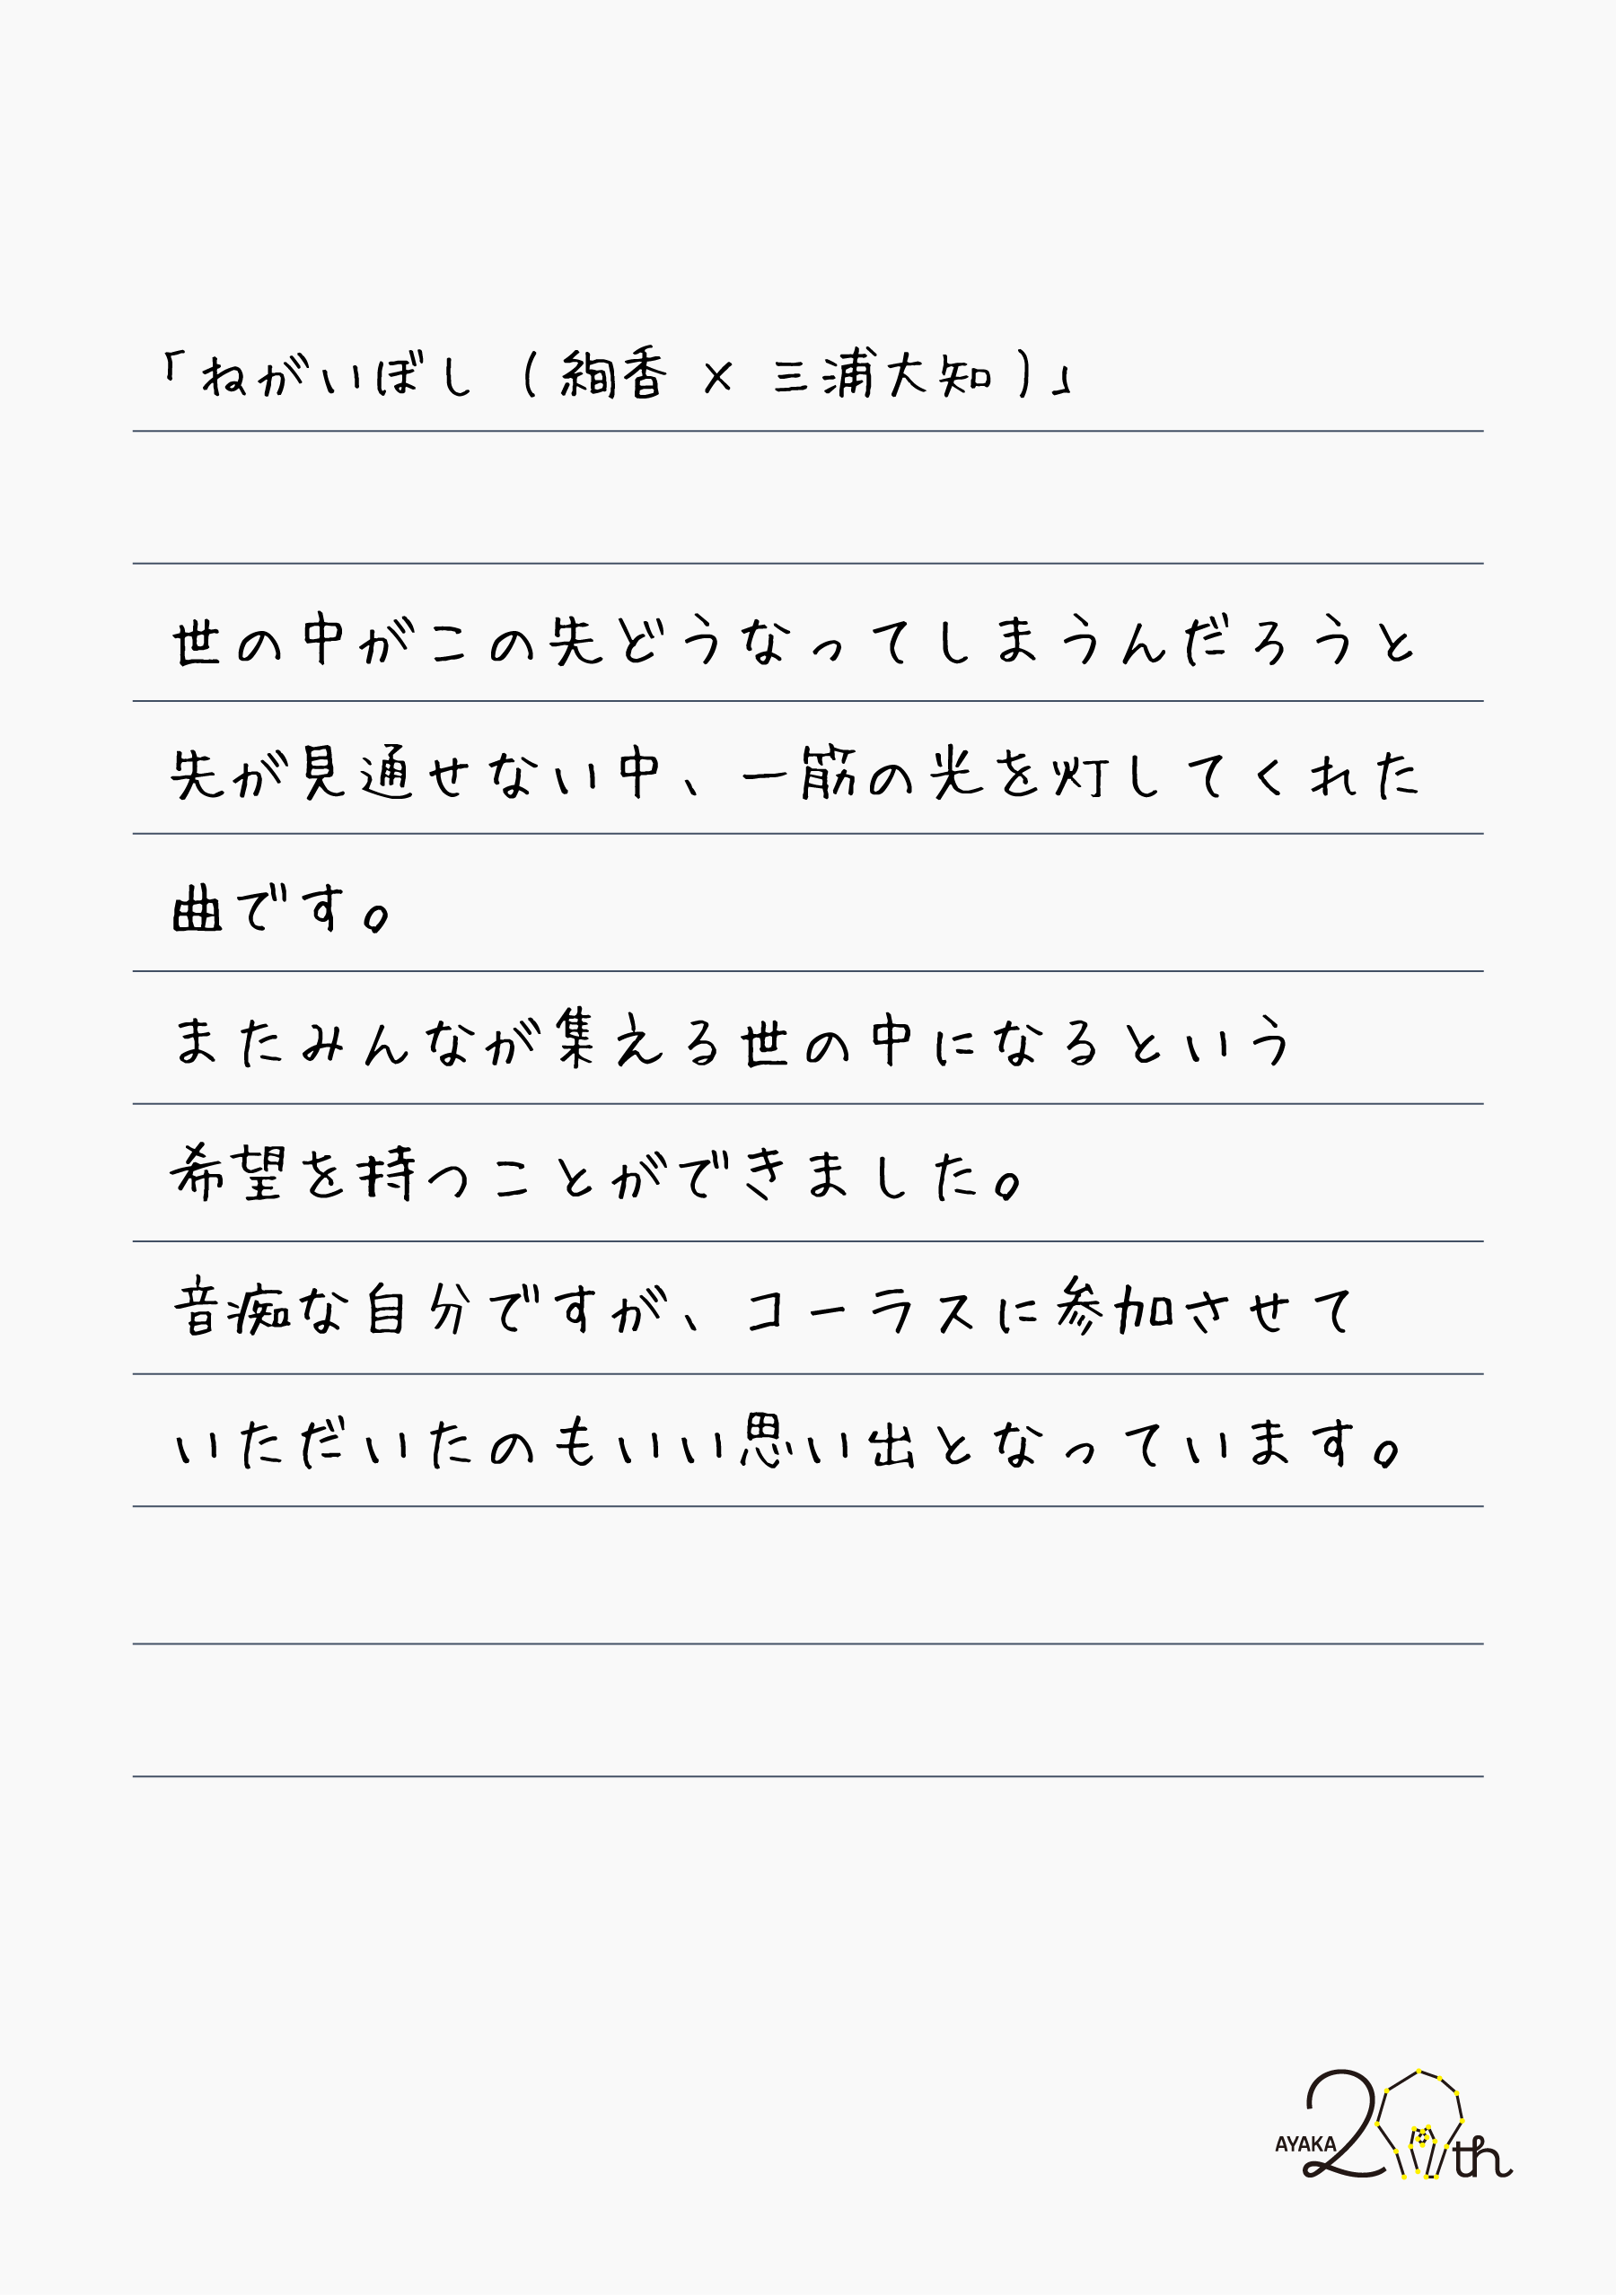 「ねがいぼし（絢香 × 三浦大知）」
世の中がこの先どうなってしまうんだろうと
先が見通せない中、一筋の光を灯してくれた
曲です。
またみんなが集える世の中になるという
希望を持つことができました。
音痴な自分ですが、コーラスに参加させて
いただいたのもいい思い出となっています。
AYAKA 20th